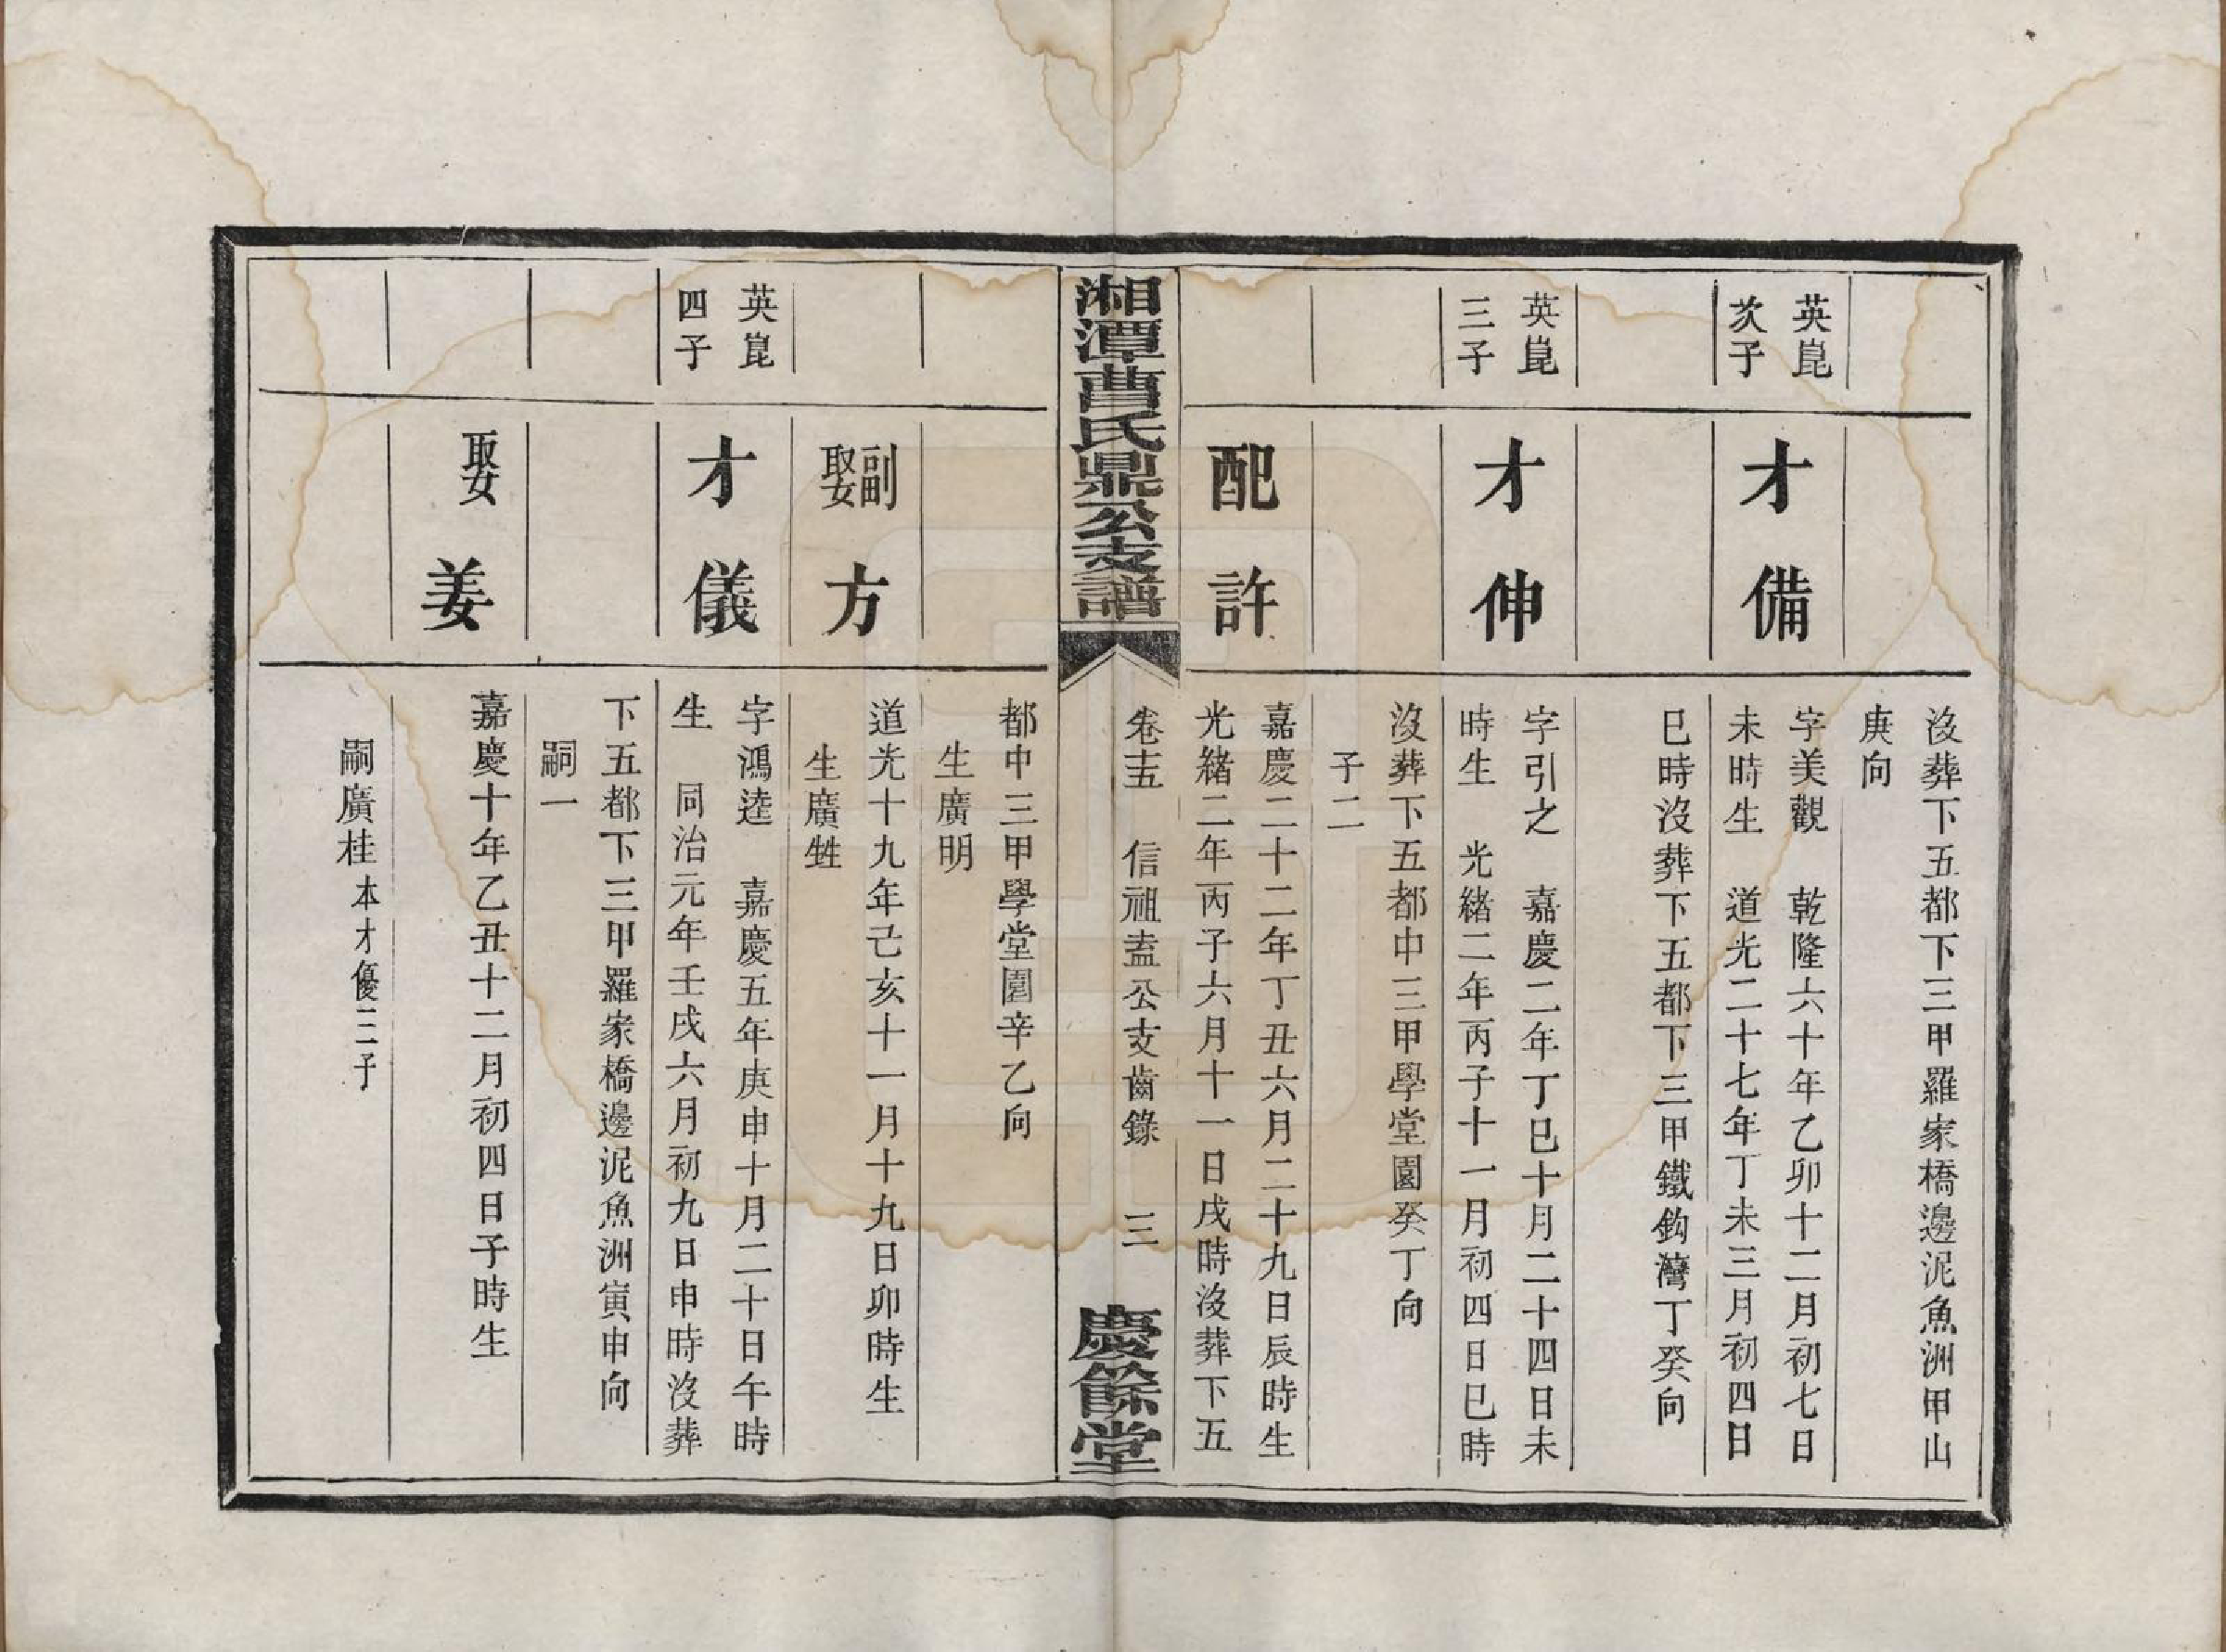 沒葬下五都下三甲羅家橋邊泥魚洲甲山
庚向
英崑
次子
才備
字美觀　乾隆六十年乙卯十二月初七日
未時生　道光二十七年丁未三月初四日
巳時沒葬下五都下三甲鐵鈎灣丁癸向
英崑
三子
才伸
字引之　嘉慶二年丁巳十月二十四日未
時生　光緒二年丙子十一月初四日巳時
沒葬下五都中三甲學堂園癸丁向
子二
配許
嘉慶二十二年丁丑六月二十九日辰時生
光緒二年丙子六月十一日戌時沒葬下五
湘潭曹氏鼎公支譜
卷十五　信祖盍公支齒錄　三
慶餘堂
都中三甲學堂園辛乙向
生廣明
副
娶
方
道光十九年己亥十一月十九日卯時生
生廣甡
英崑
四子
才儀
字鴻逵　嘉慶五年庚申十月二十日午時
生　同治元年壬戌六月初九日申時沒葬
下五都下三甲羅家橋邊泥魚洲寅申向
嗣一
娶姜
嘉慶十年乙丑十二月初四日子時生
嗣廣桂本才優三子